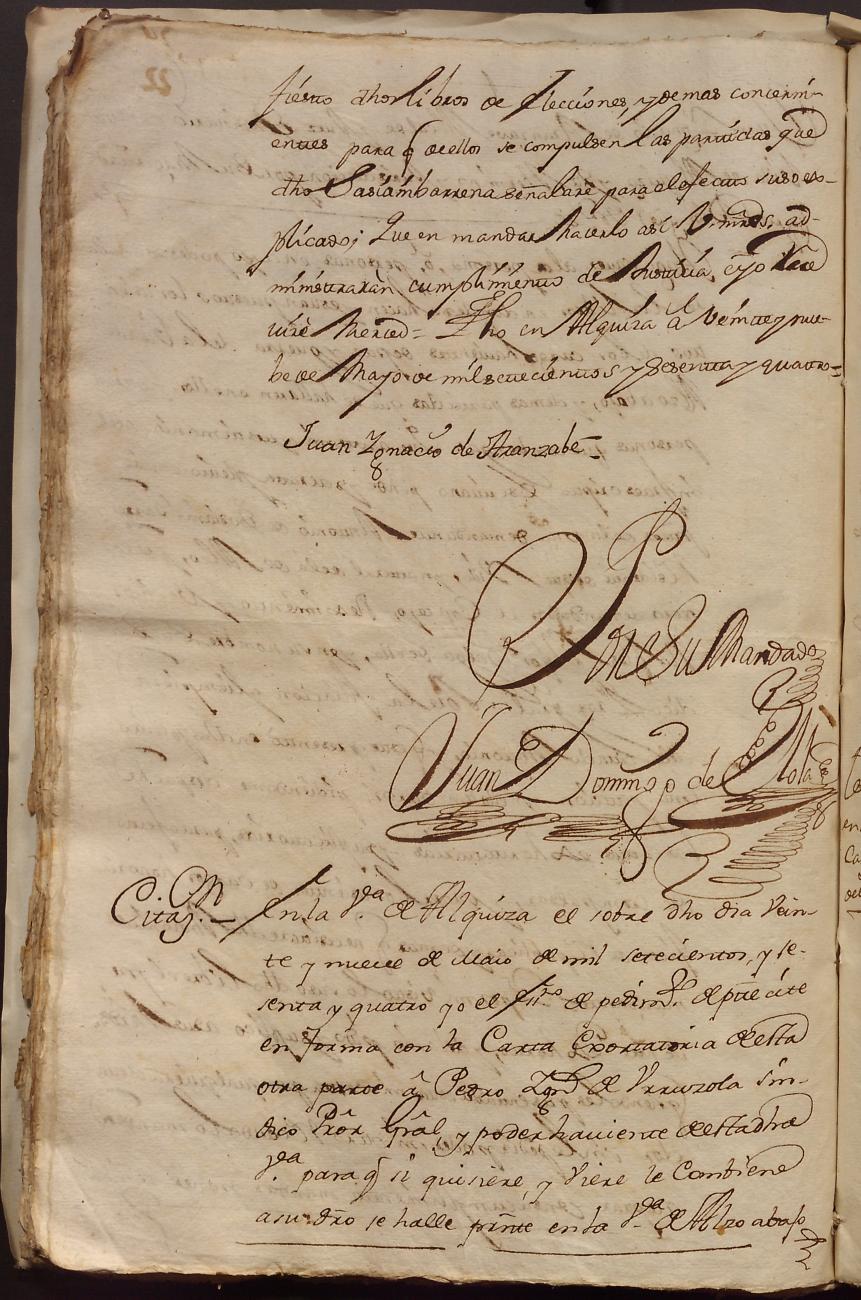 fiesto dhos libros de Elecciones, y demas concerni-
entes para q̃ de ellos se compulsen las partidas que
dho Sasiambarrena señalare para el efecto suso ex-
plicado; Que en mandar hacerlo asi Vmrds. ad-
ministraràn cumplimiento de Justicia, e yo
virè Merced= Fho en Alquiza à veinte y nue-
be de Mayo de mil setecientos y sesenta y quatro=
Juan Ignacio de Aranzabe=
Por Su Mandado
Juan Domingo de
Citaz.on En la V.a de Alquiza el sobre dho dia Vein-
te y nueve de Maio de mil setecientos, y se-
senta y quatro yo el Ess.no de pedim.to de pte cite
en forma con la Carta Exortatoria de esta
otra parte â Pedro Ign.o de Urruzola Sin-
dico Pror Gral y poder haviente de esta dha
V.a para q̃ si quisiere, y viere le Contiene
a su dro se halle prnte en la V.a de Alzo abajo